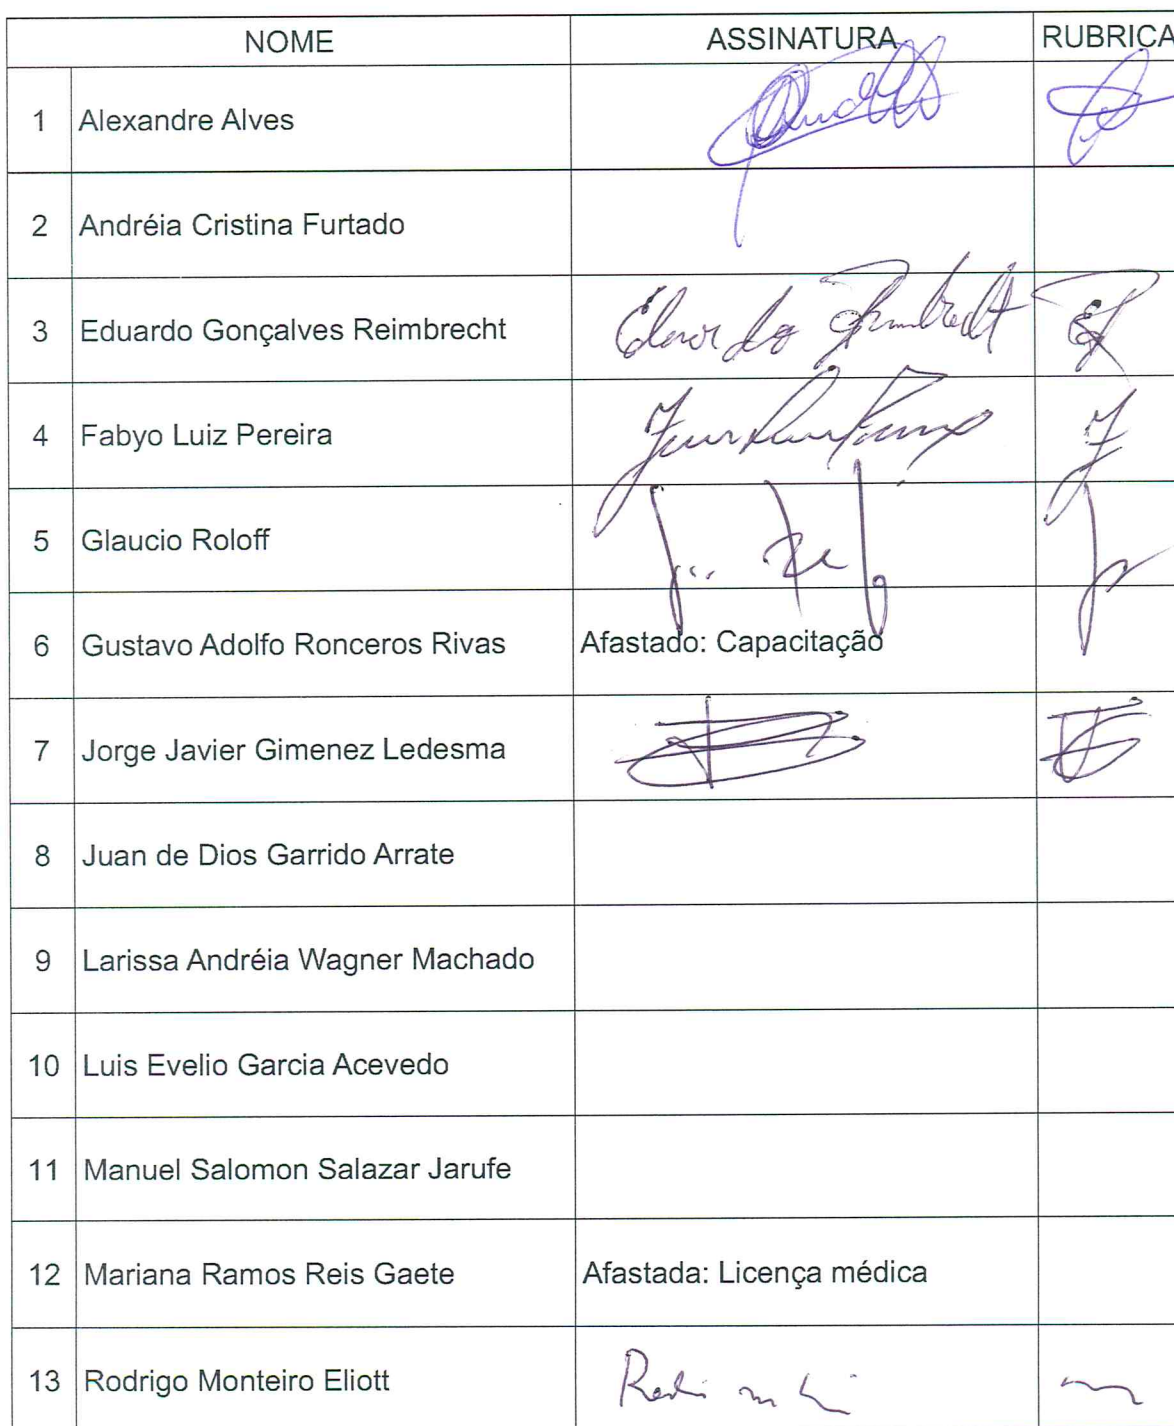 NOME ASSINATURA RUBRICA
1 Alexandre Alves
2 Andréia Cristina Furtado
3 Eduardo Gonçalves Reimbrecht Eduardo Reimbrecht
4 Fabyo Luiz Pereira
5 Glaucio Roloff
6 Gustavo Adolfo Ronceros Rivas Afastado: Capacitação
7 Jorge Javier Gimenez Ledesma
8 Juan de Dios Garrido Arrate
9 Larissa Andréia Wagner Machado
10 Luis Evelio Garcia Acevedo
11 Manuel Salomon Salazar Jarufe
12 Mariana Ramos Reis Gaete Afastada: Licença médica
13 Rodrigo Monteiro Eliott